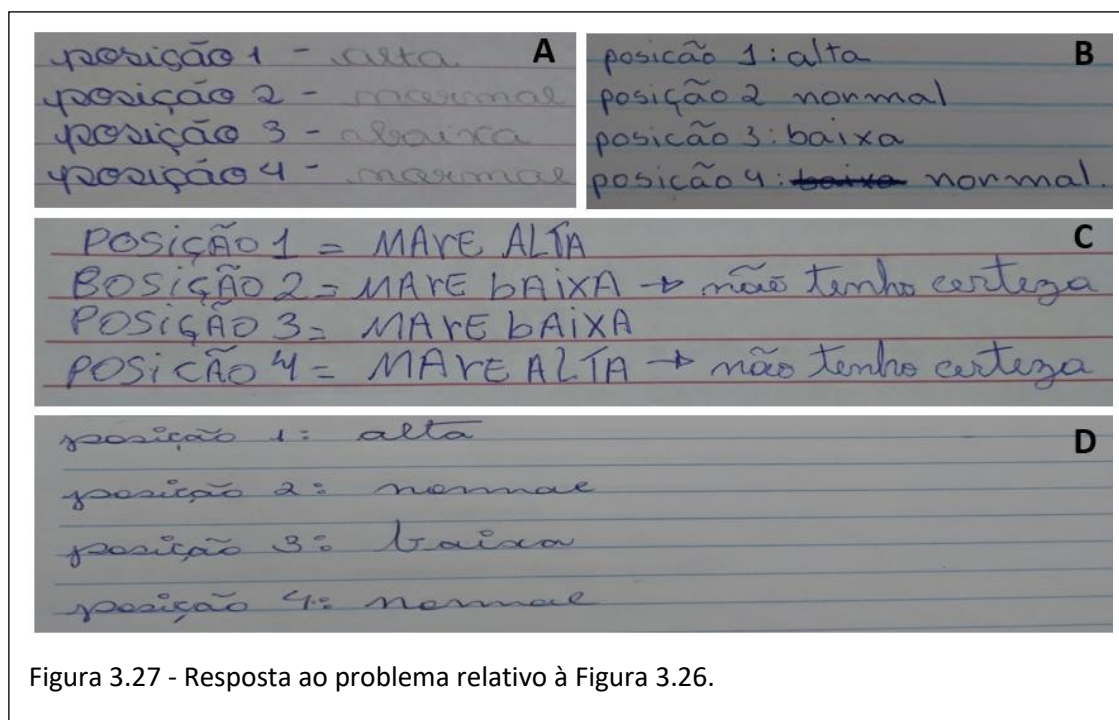 A
posição 1 - alta
posição 2 - normal
posição 3 - abaixa
posição 4 - normal
B
posicão 1: alta
posição 2 normal
posicão 3: baixa
posicão 4: baixa normal.
C
POSIÇÃO 1 = MARE ALTA
BOSIÇÃO 2 = MARE bAIXA → não tenho certeza
POSIÇÃO 3 = MARE bAIXA
POSICÃO 4 = MARE ALTA → não tenho certeza
D
posição 1: alta
posição 2: normal
posição 3: baixa
posição 4: normal
Figura 3.27 - Resposta ao problema relativo à Figura 3.26.